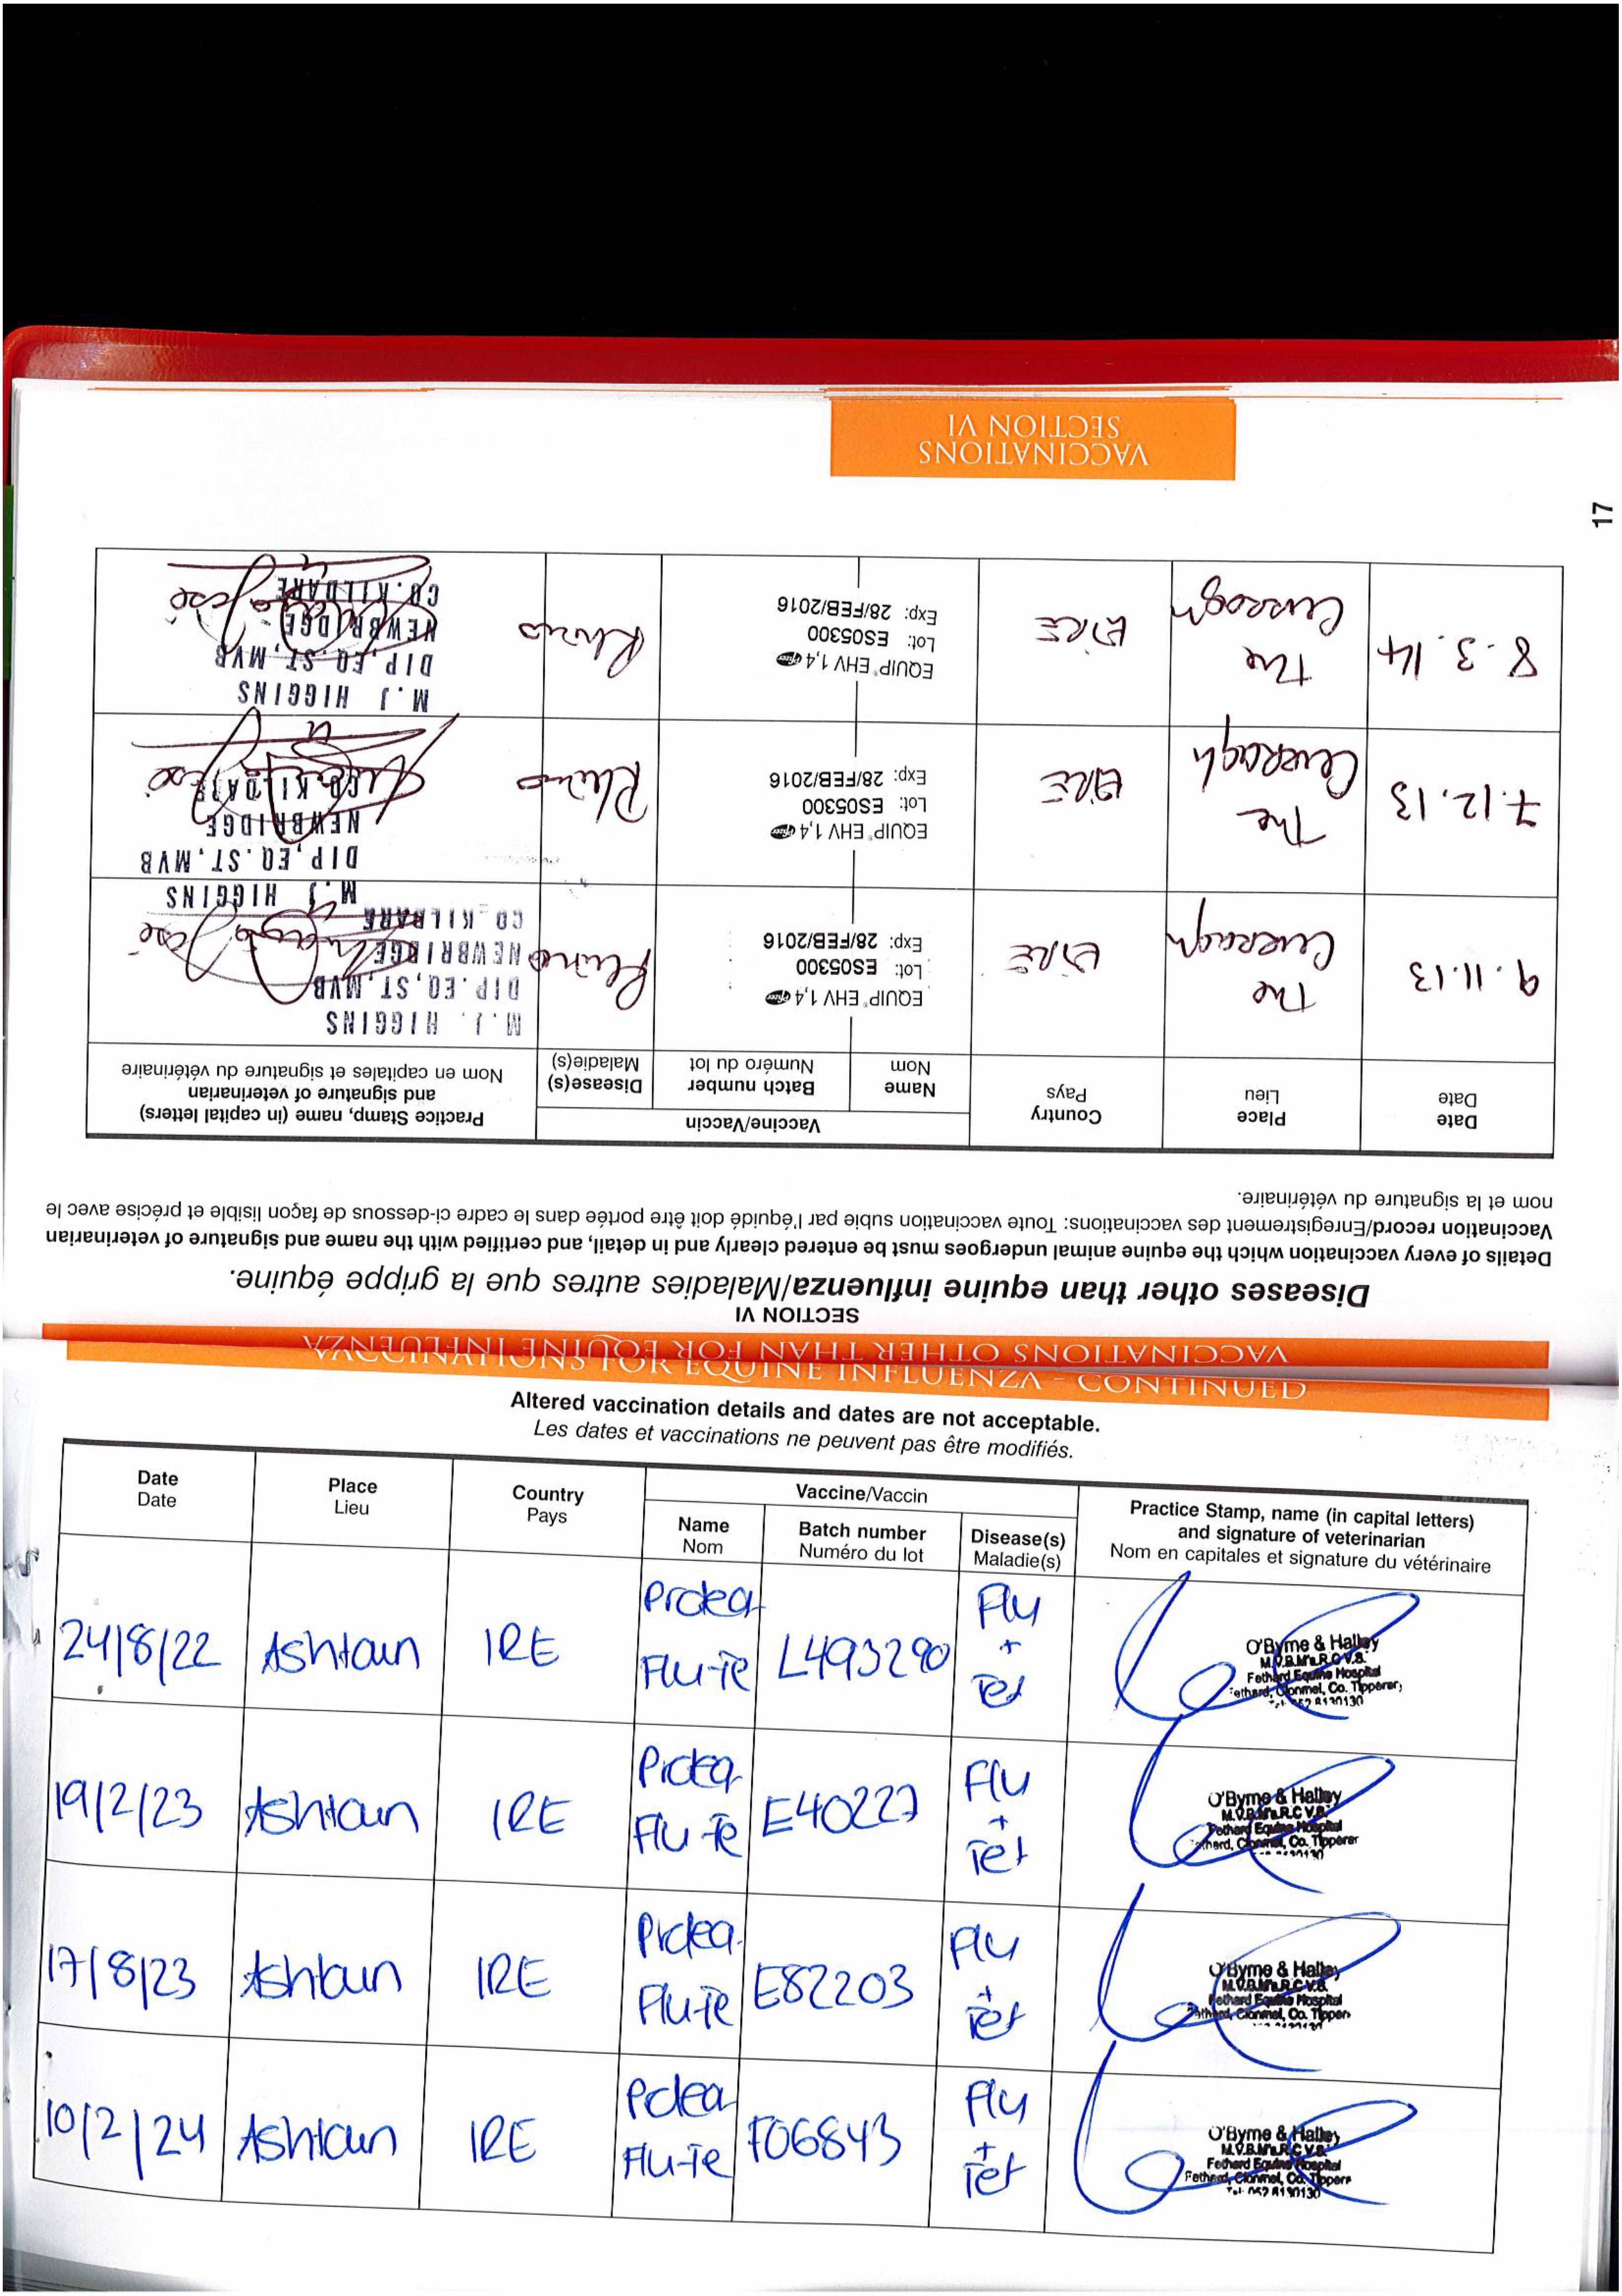 VACCINATIONS
SECTION VI
17
SECTION VI
VACCINATIONS OTHER THAN FOR EQUINE INFLUENZA
Diseases other than equine influenza/Maladies autres que la grippe équine.
Details of every vaccination which the equine animal undergoes must be entered clearly and in detail, and certified with the name and signature of veterinarian
Vaccination record/Enregistrement des vaccinations: Toute vaccination subie par l'équidé doit être portée dans le cadre ci-dessous de façon lisible et précise avec le
nom et la signature du vétérinaire.
Date
Date
Place
Lieu
Country
Pays
Vaccine/Vaccin
Name
Nom
Batch number
Numéro du lot
Disease(s)
Maladie(s)
Practice Stamp, name (in capital letters)
and signature of veterinarian
Nom en capitales et signature du vétérinaire
9.11.13
The
Curragh
EIRE
EQUIP® EHV 1,4 Pfizer
Lot: ES05300
Exp: 28/FEB/2016
Rhino
M.J. HIGGINS
DIP.EQ.ST,MVB
NEWBRIDGE
CO KILDARE
7.12.13
The
Curragh
EIRE
EQUIP® EHV 1,4 Pfizer
Lot: ES05300
Exp: 28/FEB/2016
Rhino
M.J HIGGINS
DIP,EQ.ST,MVB
NEWBRIDGE
CO KILDARE
8.3.14
The
Curragh
EIRE
EQUIP® EHV 1,4 Pfizer
Lot: ES05300
Exp: 28/FEB/2016
Rhino
M.J HIGGINS
DIP,EQ.ST,MVB
NEWBRIDGE
CO.KILDARE
VACCINATIONS FOR EQUINE INFLUENZA - CONTINUED
Altered vaccination details and dates are not acceptable.
Les dates et vaccinations ne peuvent pas être modifiés.
Date
Date
Place
Lieu
Country
Pays
Vaccine/Vaccin
Name
Nom
Batch number
Numéro du lot
Disease(s)
Maladie(s)
Practice Stamp, name (in capital letters)
and signature of veterinarian
Nom en capitales et signature du vétérinaire
24/8/22
Ashtown
IRE
Protea
Flu-Te
L493290
Flu
+
Tet
O'Byrne & Halley
M.V.B. M.R.C.V.S.
Fethard Equine Hospital
Fethard, Clonmel, Co. Tipperary
Tel: 052 6130130
19/2/23
Ashtown
IRE
Protea
Flu Te
E40227
Flu
+
Tet
O'Byrne & Halley
M.V.B. M.R.C.V.S.
Fethard Equine Hospital
Fethard, Clonmel, Co. Tipperar
17/8/23
Ashtown
IRE
Protea
Flu-Te
E82203
Flu
+
Tet
O'Byrne & Halley
M.V.B. M.R.C.V.S.
Fethard Equine Hospital
Fethard, Clonmel, Co. Tipper
10/2/24
Ashtown
IRE
Protea
Flu-Te
F06843
Flu
+
Tet
O'Byrne & Halley
M.V.B. M.R.C.V.S.
Fethard Equine Hospital
Fethard, Clonmel, Co. Tipper
Tel: 052 6130130